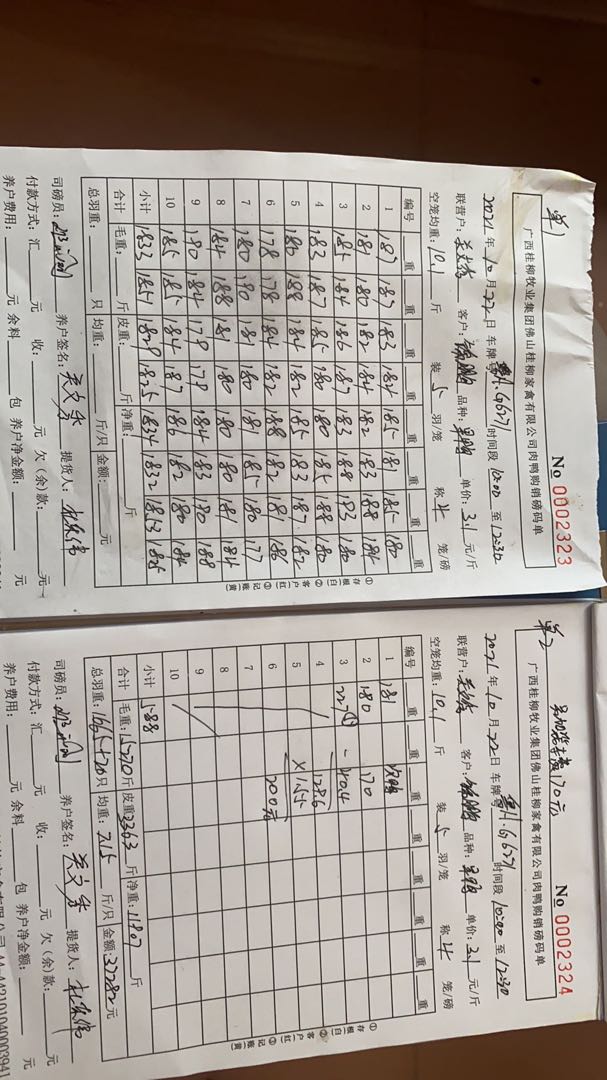 单1
No 0002323
广西桂柳牧业集团佛山桂柳家禽有限公司肉鸭购销磅码单
2021年10月22日 车牌号 G6271 时间段 10:00 至 12:30
联营户: 客户: 品种: 单价: 3.1 元/斤
空笼均重: 10.1 斤 装 5 羽/笼 称 4 笼/磅
编号 重 重 重 重 重 重 重 重
1 187 187 183 184 185 181 185 180
2 181 180 182 184 182 183 188 184
3 185 184 186 187 183 188 183 180
4 183 187 185 180 180 185 188 180
5 186 188 184 182 185 183 187 182
6 178 178 184 182 188 182 181 186
7 180 190 181 180 181 185 180 177
8 184 188 181 180 180 180 181 184
9 190 184 179 179 184 183 190 188
10 185 185 184 187 186 182 180 184
小计 1833 1851 1829 1825 1834 1832 1853 1825
合计 毛重: 斤 皮重: 斤 净重: 斤
总羽重: 只 均重: 斤/只 金额: 元
司磅员: 养户签名: 提货人:
付款方式: 汇 元 收: 元 欠(余)款: 元
养户费用: 元 余料 包 养户净金额: 元
①存根(白) ②客户(红) ③记账(黄)
单2
另加笼车费170元
No 0002324
广西桂柳牧业集团佛山桂柳家禽有限公司肉鸭购销磅码单
2021年10月22日 车牌号 G6271 时间段 10:00 至 12:30
联营户: 客户: 品种: 单价: 3.1 元/斤
空笼均重: 10.1 斤 装 5 羽/笼 称 4 笼/磅
编号 重 重 重 重 重 重 重 重
1 181
2 180 170
3 227 - 40.4
4 128.6
5 ×1.55
6 200元
7
8
9
10
小计 588
合计 毛重: 15270 斤 皮重: 3363 斤 净重: 11907 斤
总羽重: 1665 只 均重: 7.15 斤/只 金额: 37282 元
司磅员: 养户签名: 提货人:
付款方式: 汇 元 收: 元 欠(余)款: 元
养户费用: 元 余料 包 养户净金额: 元
①存根(白) ②客户(红) ③记账(黄)